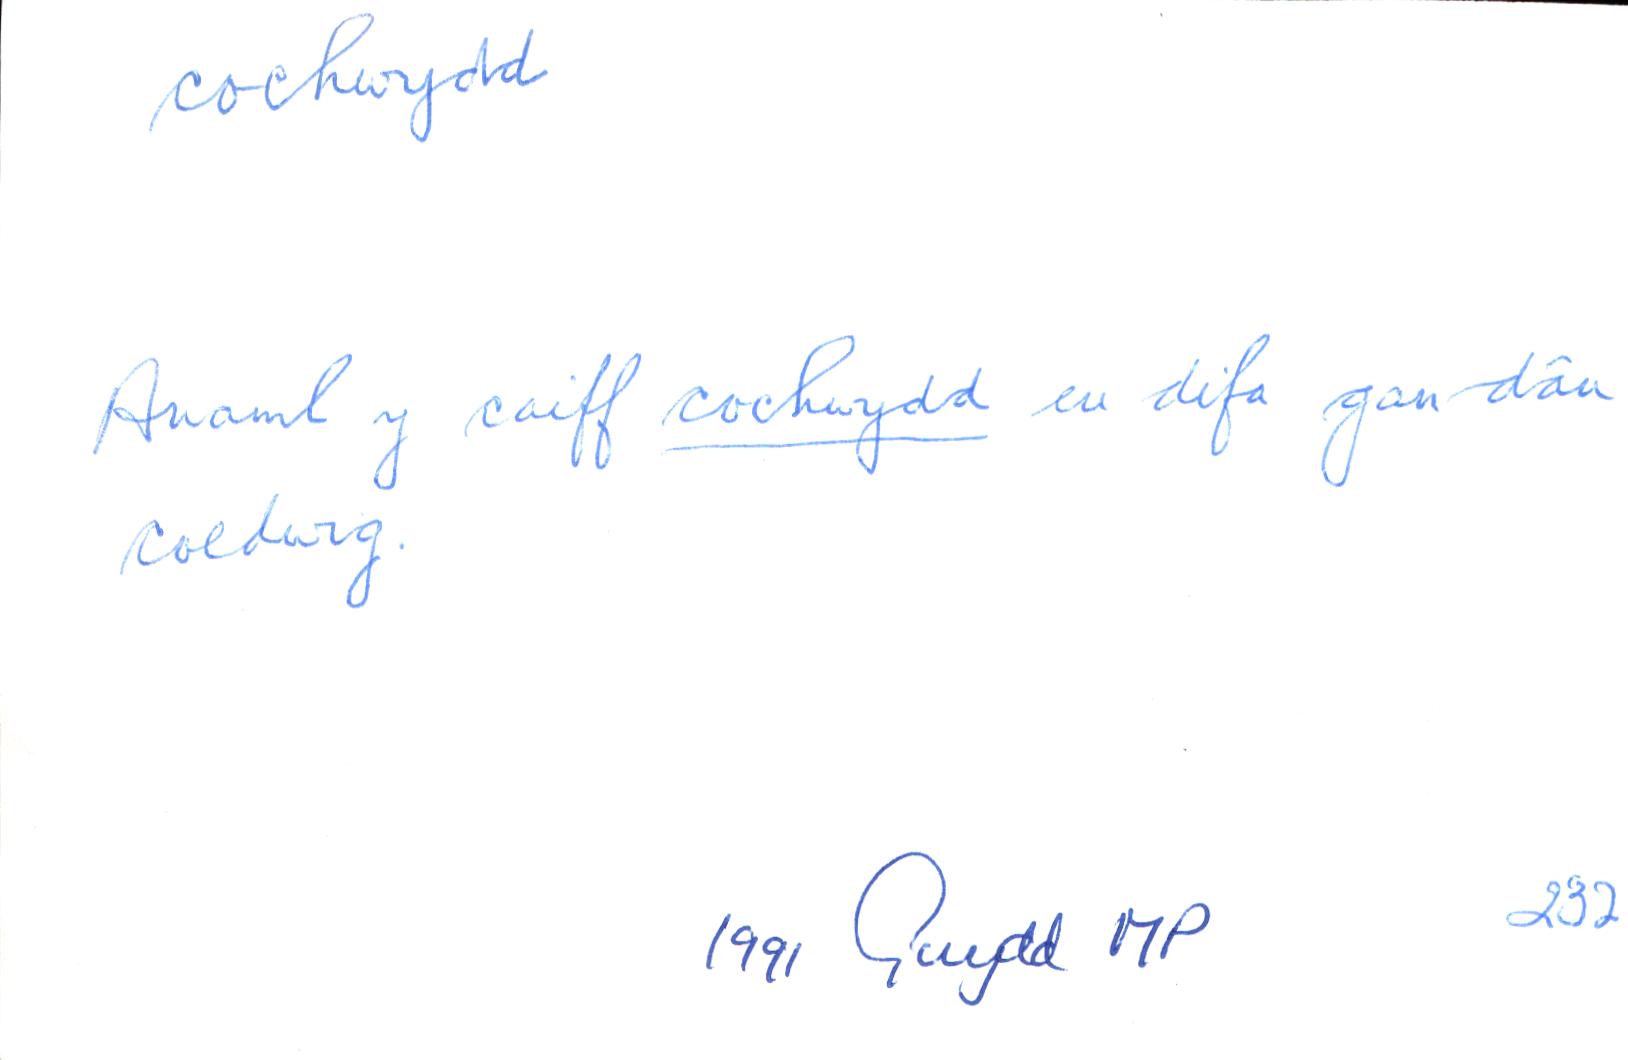 cochwydd
Anaml y caiff cochwydd eu difa gan dân
coedwig.
1991 Gwydd MP 232